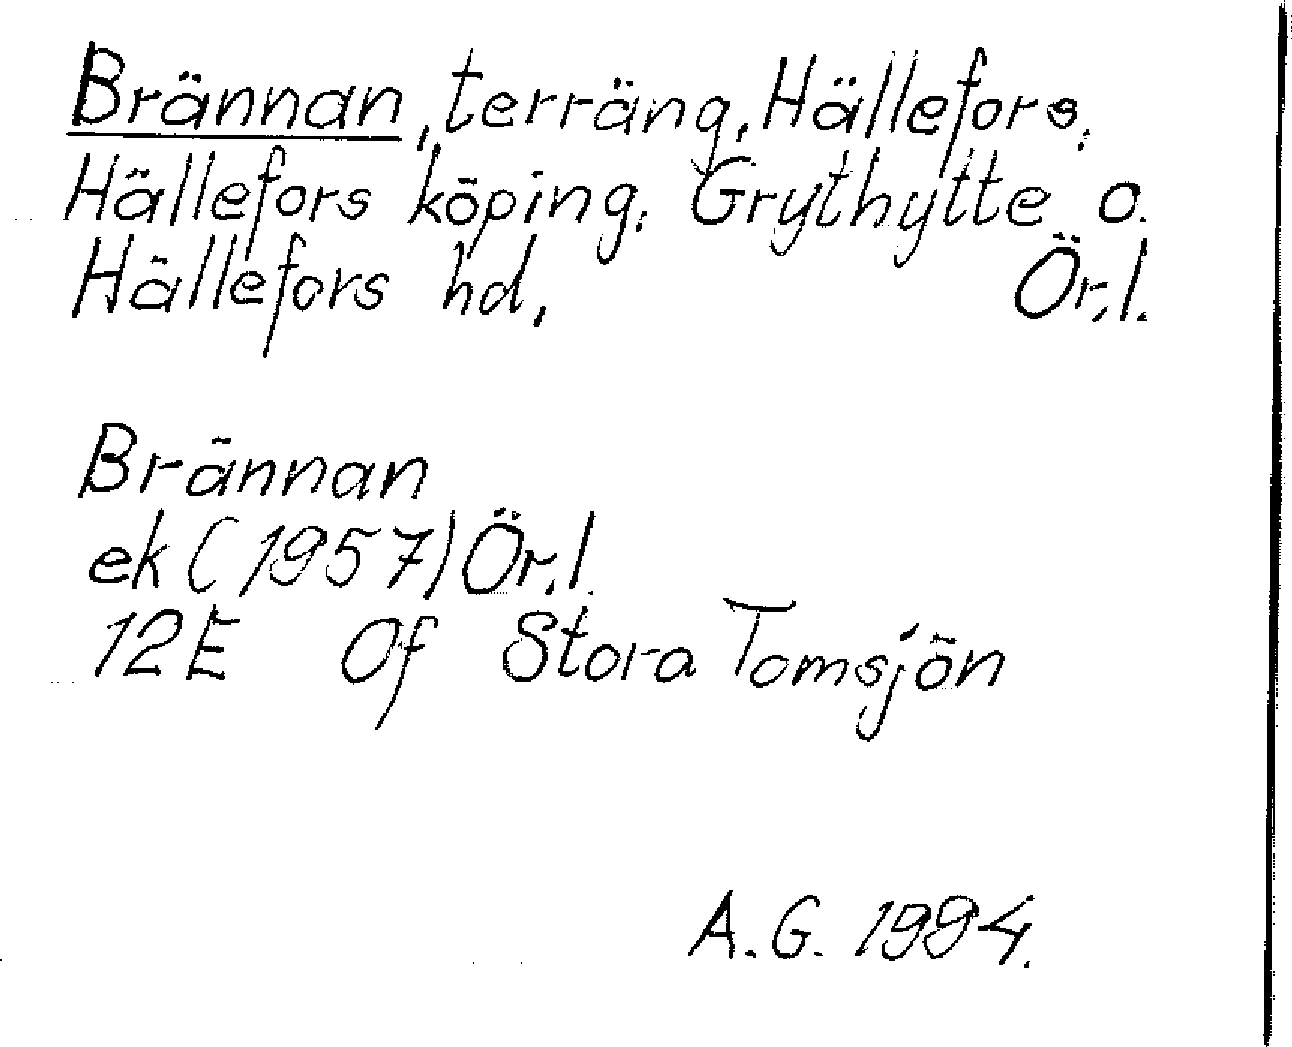 Brännan, terräng, Hällefors,
Hällefors köping, Grythytte o.
Hällefors hd, Ör.l.
Brännan
ek (1957) Ör.l.
12E 0f Stora Tomsjön
A.G. 1994.